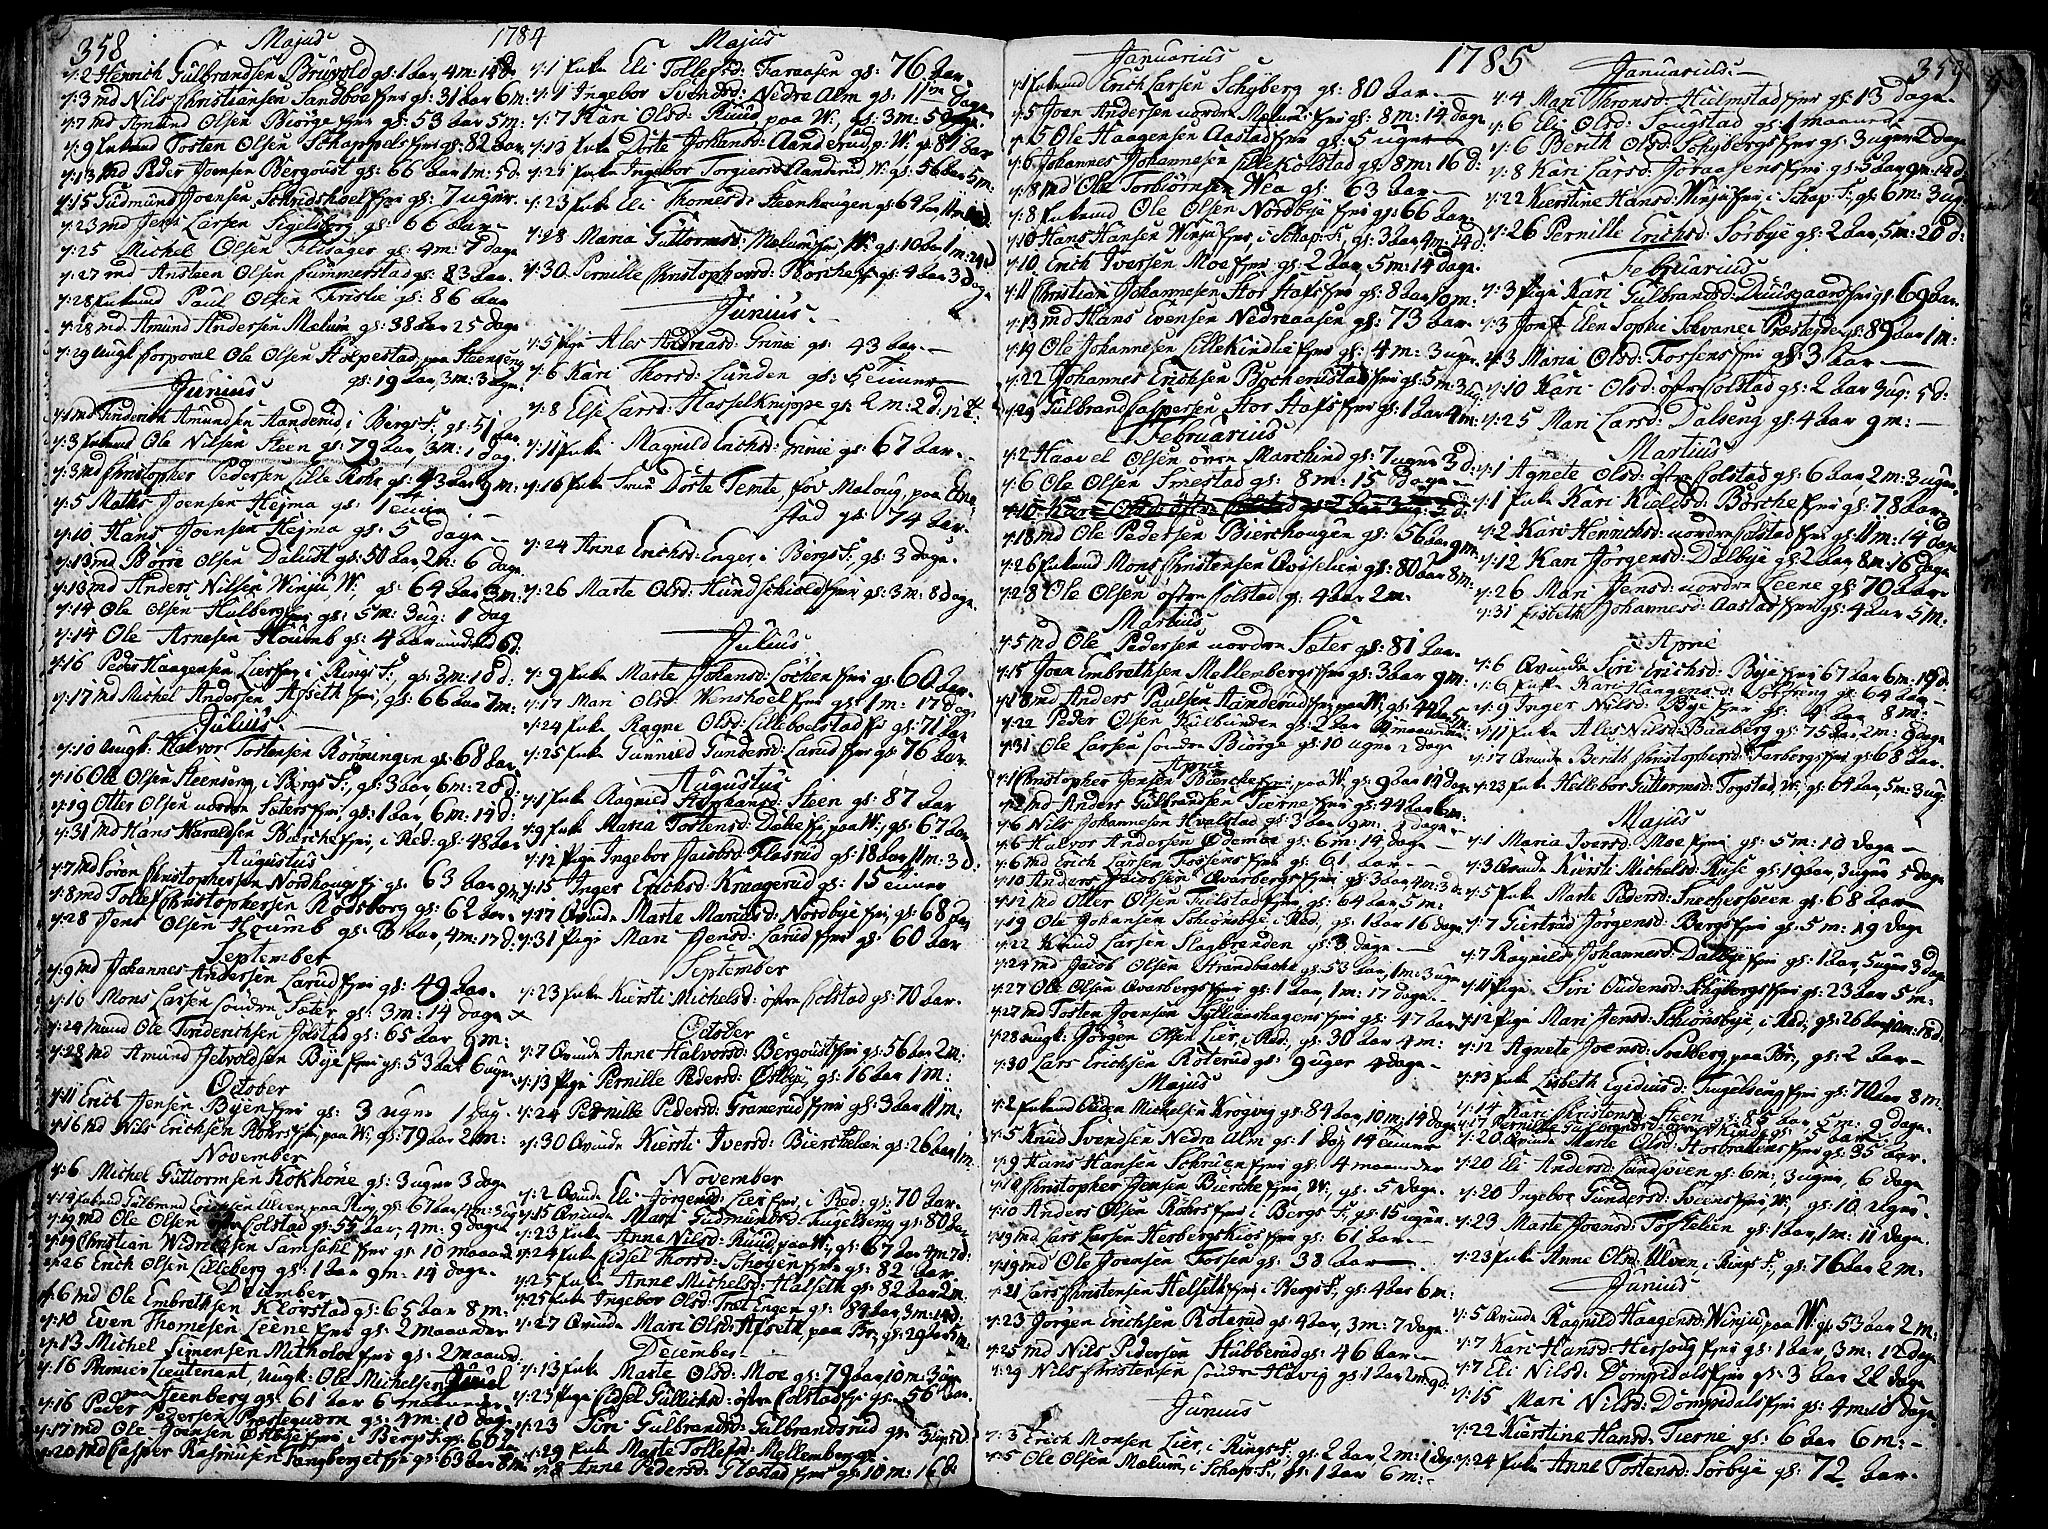 358
1784
Majus
d: 2 Henrich Gulbrandsen Bruvold gs: 1 aar 4 m: 14 d.
d: 3 md Nils Christiansen Sandboe fmi gs: 31 aar 6 m:
d: 7 md Amund Olsen Biørge fmi gs: 53 aar 5 m:
d: 9 Enkmd Tosten Olsen Schappels fmi gs: 82 aar
d: 13 md Peder Joensen Bergoust gs: 66 aar 1 m: 5 d.
d: 15 Gudmund Joensen Schridshoel fmi gs: 7 uger.
d: 23 md Jens Larsen Sigelsberg gs: 66 aar
d: 25 Michel Olsen Flisager gs: 4 m: 7 dage
d: 27 md Anstaen Olsen Hummerstad gs: 83 aar.
d: 28 Enkmd Paul Olsen Fristie gs: 86 aar
d: 28 md. Amund Andersen Mælum gs: 38 aar 25 dage
d: 29 ungk. Corporal Ole Olsen Stolpestad paa Steenseng
gs: 19 aar 3 m: 3 uger.
Junius
d: 1 md Friderich Amundsen Aanderud i Bergs S. gs: 51 aar.
d: 3 Enkmd Ole Nilsen Steen gs: 79 aar, 3 m: 1 dag.
d: 3 md Christopher Pedersen Lille Rohr gs: 43 aar 9 m:
d: 5 Mathis Joensen Hejma gs: 1 time
d: 10 Hans Joensen Hejma gs: 5 dage
d: 13 md Børre Olsen Dalust gs: 50 aar 2 m: 6 dage.
d: 13 md Anders Nilsen Winju W. 64 aar 3 m:
d: 14 Ole Olsen Hulberg fmi gs: 5 m: 3 ug: 1 dag
d: 14 Ole Arnesen Houmb gs: 4 aar mindre 6 d.
d: 16 Peder Haagensen Lier fmi i Rings S. gs: 3 m: 10 d:
d: 17 md Michel Andersen Alseth fmi gs: 66 aar 7 m:
Julius
d: 10 ungk: Halvor Tostensen Rønningen gs: 68 aar
d: 16 Ole Olsen Steenseng, i Bergs S., gs: 3 aar, 6 m: 28 d:
d: 19 Otter Olsen nordre Sæters fmi, gs: 1 aar, 6 m: 14 d:
d: 31 md Hans Haraldsen Bierche fmi, i Red: gs: 48 aar
Augustus
d: 7 md Søren Christophersen Nordhoug fj gs. 63 aar 9 m
d: 8 md Tolle Christophersen Rodsborg gs: 62 aar.
d: 28 Jens Olsen Houmb gs: 3 aar, 4 m: 17 d:
September
d: 9 md Johannes Andersen Larud fmi gs: 49 aar.
d: 16 Mons Larsen Søndre Sæter gs: 3 m: 14 dage
d: 24 mand Ole Friderichsen Jølstad gs: 65 aar 6 m:
d: 28 md Amund Jetvoldsen Bye fmi gs: 53 aar 6 uger
October
d: 11 Erich Jensen Byen fmi gs: 3 uger 1 dag.
d: 16 md Nils Erichsen Rohrs fmi, paa W: gs: 79 aar 2 m:
November
d: 6 Michel Guttormsen Kokhone gs: 3 uger 3 dage
d: 14 Enkmd Gulbrand Erichsen Ulven paa Ring gs: 67 aar
d: 19 md Ole Olsen øfre Colstad gs: 55 aar, 4 m: 9 dage
d: 19 Christian Widrichsen Samsahl fmi gs: 10 maaneder
d: 26 Erich Olsen Lilleberg gs: 1 aar 9 m: 14 dage.
December
d: 6 md Ole Embrethsen Klovstad gs: 65 aar 8 m:
d: 10 Even Thomesen Leene fmi gs: 2 maaneder
d: 13 Michel Simensen Metholoe fmi gs: 2 maaned.
d: 16 Premier Lieutenant, ungk: Ole Michelsen Juul
paa Steenberg gs: 61 aar 6 maaneder.
d: 16 Peder Pedersen Prestegaarn gs: 4 m: 10 dage
d: 17 md Ole Joensen Ostbye fmi i Bergs S. gs: 60 aar
d: 20 md Casper Rasmusen Tangberget fmi gs: 63 aar 8 m:
Majus
d: 1 Enke Eli Tollefsd: Faraasen gs: 76 aar.
d: 1 Ingebor Svendsd: Nedre Alm gs: 11 dage
d: 7 Kari Olsd: Ruud paa W:, gs: 3 m: 5 dage.
d: 13 Enke Dorte Johansd: Aanderud p. W: gs: 81 aar
d: 21 Enke Ingebor Torgiersd: Aanderud W: gs: 56 aar 5 m:
d: 23 Enke Eli Thomesd: Steenhougen gs: 64 aar
d: 28 Maria Guttormsd: Mælum fmi W: gs: 10 aar 1 m: 24 d
d: 30 Pernille Christophersd: Bierche fj gs: 4 aar 3 dage
Junius
d: 5 Pige Ales Andreasd: Grinie gs: 43 aar.
d: 6 Kari Thorsd: Lunden gs: 5 timer
d: 8 Else Larsd: Hasselknippe gs: 2 m: 2 d:
d: 11 Enke Magnild Erichsd: Grinie gs: 67 aar.
d: 16 Enke Frue Dorte Temte, fød Meloug, paa Ene-
stad gs: 74 aar.
d: 24 Anne Erichsd: Enger, i Bergs S. gs: 3 dage.
d: 26 Marte Olsd: Hundschiold fmi gs: 3 m: 8 dage.
Julius
d: 9 Enke Marte Johansd: Løchen fmi gs: 60 aar.
d: 17 Mari Olsd: Wenshoel fmi gs: 1 m: 17 dag.
d: 24 Enke Ragne Olsd: Lillebolstad fj gs: 71 aar
d: 25 Enke Gunnild Gundersd: Larud fmi gs: 76 aar.
Augustus
d: 1 Enke Ragnild Stephansd: Steen gs: 87 aar
d: 9 Enke Maria Tostensd: Dahl fj paa W:, gs: 67 aar
d: 12 Pige Ingebor Jacobsd: Flasrud gs: 18 aar 11 m: 3 d.
d: 15 Inger Erichsd: Kraagerud gs: 15 timer
d: 17 Qvinde Marte Mariusd: Nordbye fmi, gs: 68 aar
d: 31 Pige Mari Jensd: Larud fmi gs: 60 aar
September
d: 23 Enke Kiersti Michelsd: øfre Colstad gs: 70 aar.
October
d: 7 Qvinde Anne Halvorsd: Bergoust fmi gs: 56 aar 2 m:
d: 13 Pige Pernille Pedersd: Ostbye, gs: 16 aar 1 m:
d: 24 Pernille Pedersd: Granerud fmi gs: 3 aar 11 m:
d: 30 Qvinde Kiersti Iversd: Bierchelien gs: 26 aar 1 m.
November
d: 2 Qvinde Eli Jørgensd: Lier fmi, i Red: gs: 70 aar.
d: 15 Qvinde Mari Gudmundsd: Fugelseng gs: 80 aar
d: 23 Enke Anne Nilsd: Ruud paa W., gs: 67 aar 4 m 7 d:
d: 24 Enke Edsel Thorsd: Schoyen fmi gs: 82 aar
d: 25 Enke Anne Michelsd: Halseth gs: 82 aar 2 m:
d: 25 Enke Ingebor Olsd: Træt Engen gs: 84 aar, 3 m: 14 d.
d: 27 Qvinde Mari Olsd: Alseth, paa Br., gs: 29 aar
December
d: 13 Enke Marte Olsd: Moe gs: 79 aar 10 m: 3 uger
d: 23 Pige Edsel Gullichsd: øfre Colstad fj gs: 56 aar.
d: 23 Siri Gulbrandsd: Gulbrandsrud gs: 3 ug: 5 d.
d: 29 Enke Marte Tollefsd: Mellemberg gs
d: 8 Anne Pedersd: Glæstad fmi gs: 10 m: 16 d:
1785
359
Januarius
d: 1 Enkmd Erich Larsen Schyberg gs: 80 aar.
d: 5 Joen Andersen nordre Mælum fmi gs: 8 m: 14 dage
d: 5 Ole Haagensen Aastad fmi gs: 5 uger
d: 6 Johannes Johannesen Lille Kolstad gs: 8 m: 16 d:
d: 8 md Ole Torbiørnsen Wea gs: 63 aar
d: 8 Enkmd Ole Olsen Nordbye fmi gs: 66 aar.
d: 10 Hans Hansen Winju fmi, i Schap: S., gs: 3 aar 4 m: 14 d.
d: 10 Erich Iversen Moe fmi gs: 2 aar, 5 m: 14 dage.
d: 11 Christian Johannesen Stor Hofs fmi gs: 8 aar, 10 m:
d: 13 md Hans Evensen Nedreaasen gs: 73 aar.
d: 19 Ole Johannesen Lillekindlie fmi gs: 4 m: 3 uger
d: 22 Johannes Erichsen Bocherudstad fmi gs: 5 m: 3 ug:
d: 29 Gulbrand Caspersen Stor Hofs fmi gs: 1 aar 4 m:
Februarius
d: 2 Haavel Olsen øvre Marchind gs: 7 uger 3 d:
d: 6 Ole Olsen Smestad gs: 8 m: 15 dage
d: 10 Kari Olsd: øfre Colstad gs: 2 aar 3 ug: 5 d:
d: 18 md Ole Pedersen Bierchougen gs: 56 aar 9 m:
d: 26 Enkmd Mons Christensen Qvislien gs: 80 aar 8 m:
d: 28 Ole Olsen øfre Colstad gs: 4 aar 2 m.
Martius
d: 5 md Ole Pedersen nordre Sæter gs: 81 aar.
d: 15 Joen Embrethsen Mellembergs fmi gs: 3 aar 9 m:
d: 18 md Anders Paulsen Aanderud fmi paa W: gs: 44 aar 5 m:
d: 22 Peder Olsen Kulbunden gs: 2 aar
d: 31 Ole Larsen søndre Biørge gs: 10 uger 2 dage
April
d: 1 Christopher Jensen Bierche fmi paa W: gs: 9 aar 14 dage
d: 2 md Anders Gulbrandsen Tierne fmi gs: 44 aar 6 m:
d: 6 Nils Johannesen Hvalstad gs: 3 aar 9 m: dage
d: 6 Halvor Andersen Ødemoe gs: 6 m: 14 dage
d: 6 md Erich Larsen Fossens fmi gs: 61 aar
d: 10 Anders Jacobsen Qvarbergs fmi gs: 3 aar, 4 m: 3 u:
d: 12 md Otter Olsen Fielstad fmi gs: 64 aar 5 m:
d: 19 Ole Johansen Schiønsbye i Red, gs: 1 aar 16 dage
d: 22 Knud Larsen Slagbrenden gs: 3 dage
d: 24 md Jacob Olsen Strandbache gs: 53 aar, 1 m: 3 uger
d: 27 Ole Olsen Qvarbergs fmi gs: 1 aar, 1 m: 17 dage.
d: 27 md Tosten Joensen Gyllianshagens fmi gs: 47 aar
d: 28 ungk: Jørgen Olsen Lier, i Red, gs: 30 aar 4 m:
d: 30 Lars Erichsen Roterud gs: 9 uger 4 dage
Majus
d: 2 Enkmd Ouden Michelsen Krogvig gs: 84 aar, 10 m: 14 dage
d: 5 Knud Svendsen Nedre Alm gs: 1 dag 14 timer
d: 9 Hans Hansen Schruen fmi gs: 4 maaneder
d: 10 Christopher Jensen Bierche fmi W:, gs. 5 dage.
d: 10 Anders Olsen Røhrs fmi i Bergs S., gs: 15 uger.
d: 19 md Lars Larsen Herbergskios fmi gs: 61 aar
d: 19 md Ole Joensen Forsen gs: 38 aar
d: 21 Lars Christensen Helseth fmi, i Bergs S., gs: 4 aar 6 m:
d: 23 Jørgen Erichsen Roterud gs: 4 aar, 3 m: 7 dage.
d: 25 md Nils Pedersen Stubberud gs: 46 aar
d: 29 Nils Christensen søndre Hovig gs: 1 aar 2 m: 9 d.
Junius
d: 3 Erich Monsen Lier, i Rings S., gs: 2 aar 2 m: 1 dag.
d: 5 Ole Olsen Mælum, i Schap: S., gs: 1 aar 6 m:
Januarius
d: 4 Mari Thronsd: Hielmstad fmi gs: 13 dage.
d: 6 Eli Olsd: Fougstad gs: 1 maaned
d: 6 Berith Olsd: Schybergs fmi gs: 3 uger 2 dage
d: 8 Kari Larsd: Joraasens fmi gs: 5 aar 9 m: 14 d:
d: 22 Kierstine Hansd: Winju fmi i Schap: S., gs: 6 m: 3 ug:
d: 26 Pernille Erichsd: Sørbye gs: 2 aar, 5 m: 20 d:
Februarius
d: 3 Pige Kari Gulbrandsd: Duusgaard fmi gs: 69 aar.
d: 3 Jomf. Elen Sophie Solvane i Præstegde gs: 89 aar 1 m:
d: 3 Maria Olsd: Forsens fmi gs: 3 aar
d: 10 Kari Olsd: øfre Colstad gs: 2 aar 3 ug: 5 d:
d: 25 Mari Larsd: Dalseng gs: 4 aar 9 m:
Martius
d: 1 Agnete Olsd: øfre Colstad gs: 6 aar, 2 m: 3 uger.
d: 1 Enke Kari Kieldsd: Børche fmi gs: 78 aar.
d: 2 Kari Henrichsd: nordre Jølstad fmi gs: 11 m: 14 dage
d: 12 Kari Jørgensd: Dalbye gs: 2 aar 8 m: 16 dage
d: 26 Mari Jensd: nordre Leene gs: 70 aar
d: 31 Lisbeth Johannesd: Aastad fmi gs: 4 aar 5 m:
April
d: 6 Qvinde Siri Erichsd: Bye fmi 67 aar 6 m: 19 d.
d: 6 Enke Kari Haagensd: gs: 64 aar
d: 9 Inger Nilsd: Bye fmi gs: 4 aar 8 m:
d: 11 Enke Ales Nilsd: Braaberg gs: 75 aar 2 m: 6 dage
d: 17 Qvinde Berith Christophersd: Farbergs fmi gs: 68 aar.
d: 23 Enke Hellebor Guttormsd: Fogstad, W: gs: 64 aar, 5 m: 3 ug:
Majus
d: 1 Maria Iversd: Moe fmi gs: 5 m: 10 dage
d: 3 Qvinde Kiersti Michelsd: Ruse gs: 19 aar, 3 uger 5 dage
d: 5 Enke Marte Pedersd: Snechespeen gs: 68 aar
d: 7 Giertrud Jørgensd: Bergs fmi gs: 5 m: 19 dage
d: 7 Ragnild Johannesd: Dalbye fmi gs: 1 aar, 5 uger 3 dage
d: 11 Pige Siri Oudensd: Schybergs fmi gs: 23 aar 5 m:
d: 12 Pige Mari Jensd: Schiønsbye, i Red, gs: 26 aar
d: 12 Agnete Joensd: Soelberg paa Br:, gs: 2 aar
d: 13 Enke Lisbeth Egidiusd: Fugelseng fmi gs: 70 aar 8 m:
d: 14 Kari Christensd: Steen gs: 85 aar, 2 m: 9 dage.
d: 17 Pernille Gulbrandsd: øvre Kinde gs: 5 aar
d: 20 Qvinde Marte Olsd: Hordbakens fmi gs: 35 aar.
d: 20 Eli Andersd: Sundsveen gs: 6 m: 3 uger, 6 dage
d: 20 Ingebor Gundersd: Sveens fmi W:, gs: 10 uger.
d: 23 Marte Joensd: Toftelien gs: 1 aar, 1 m: 11 dage.
d: 23 Enke Anne Olsd: Ulven, i Rings S., gs: 76 aar 2 m:
Junius
d: 5 Qvinde Ragnild Haagensd: Winju paa W: gs: 53 aar 2 m:
d: 7 Kari Hansd: Hersoug fmi gs: 1 aar, 3 m: 12 dage
d: 7 Eli Nilsd: Dompidals fmi gs: 3 aar 22 dage
d: 15 Mari Nilsd: Dompidals fmi gs: 4 m: 10 dage
d: 22 Kierstine Hansd: Tierne gs: 6 aar 6 m:
d: 24 Enke Anne Tostensd: Sørbye gs: 72 aar.